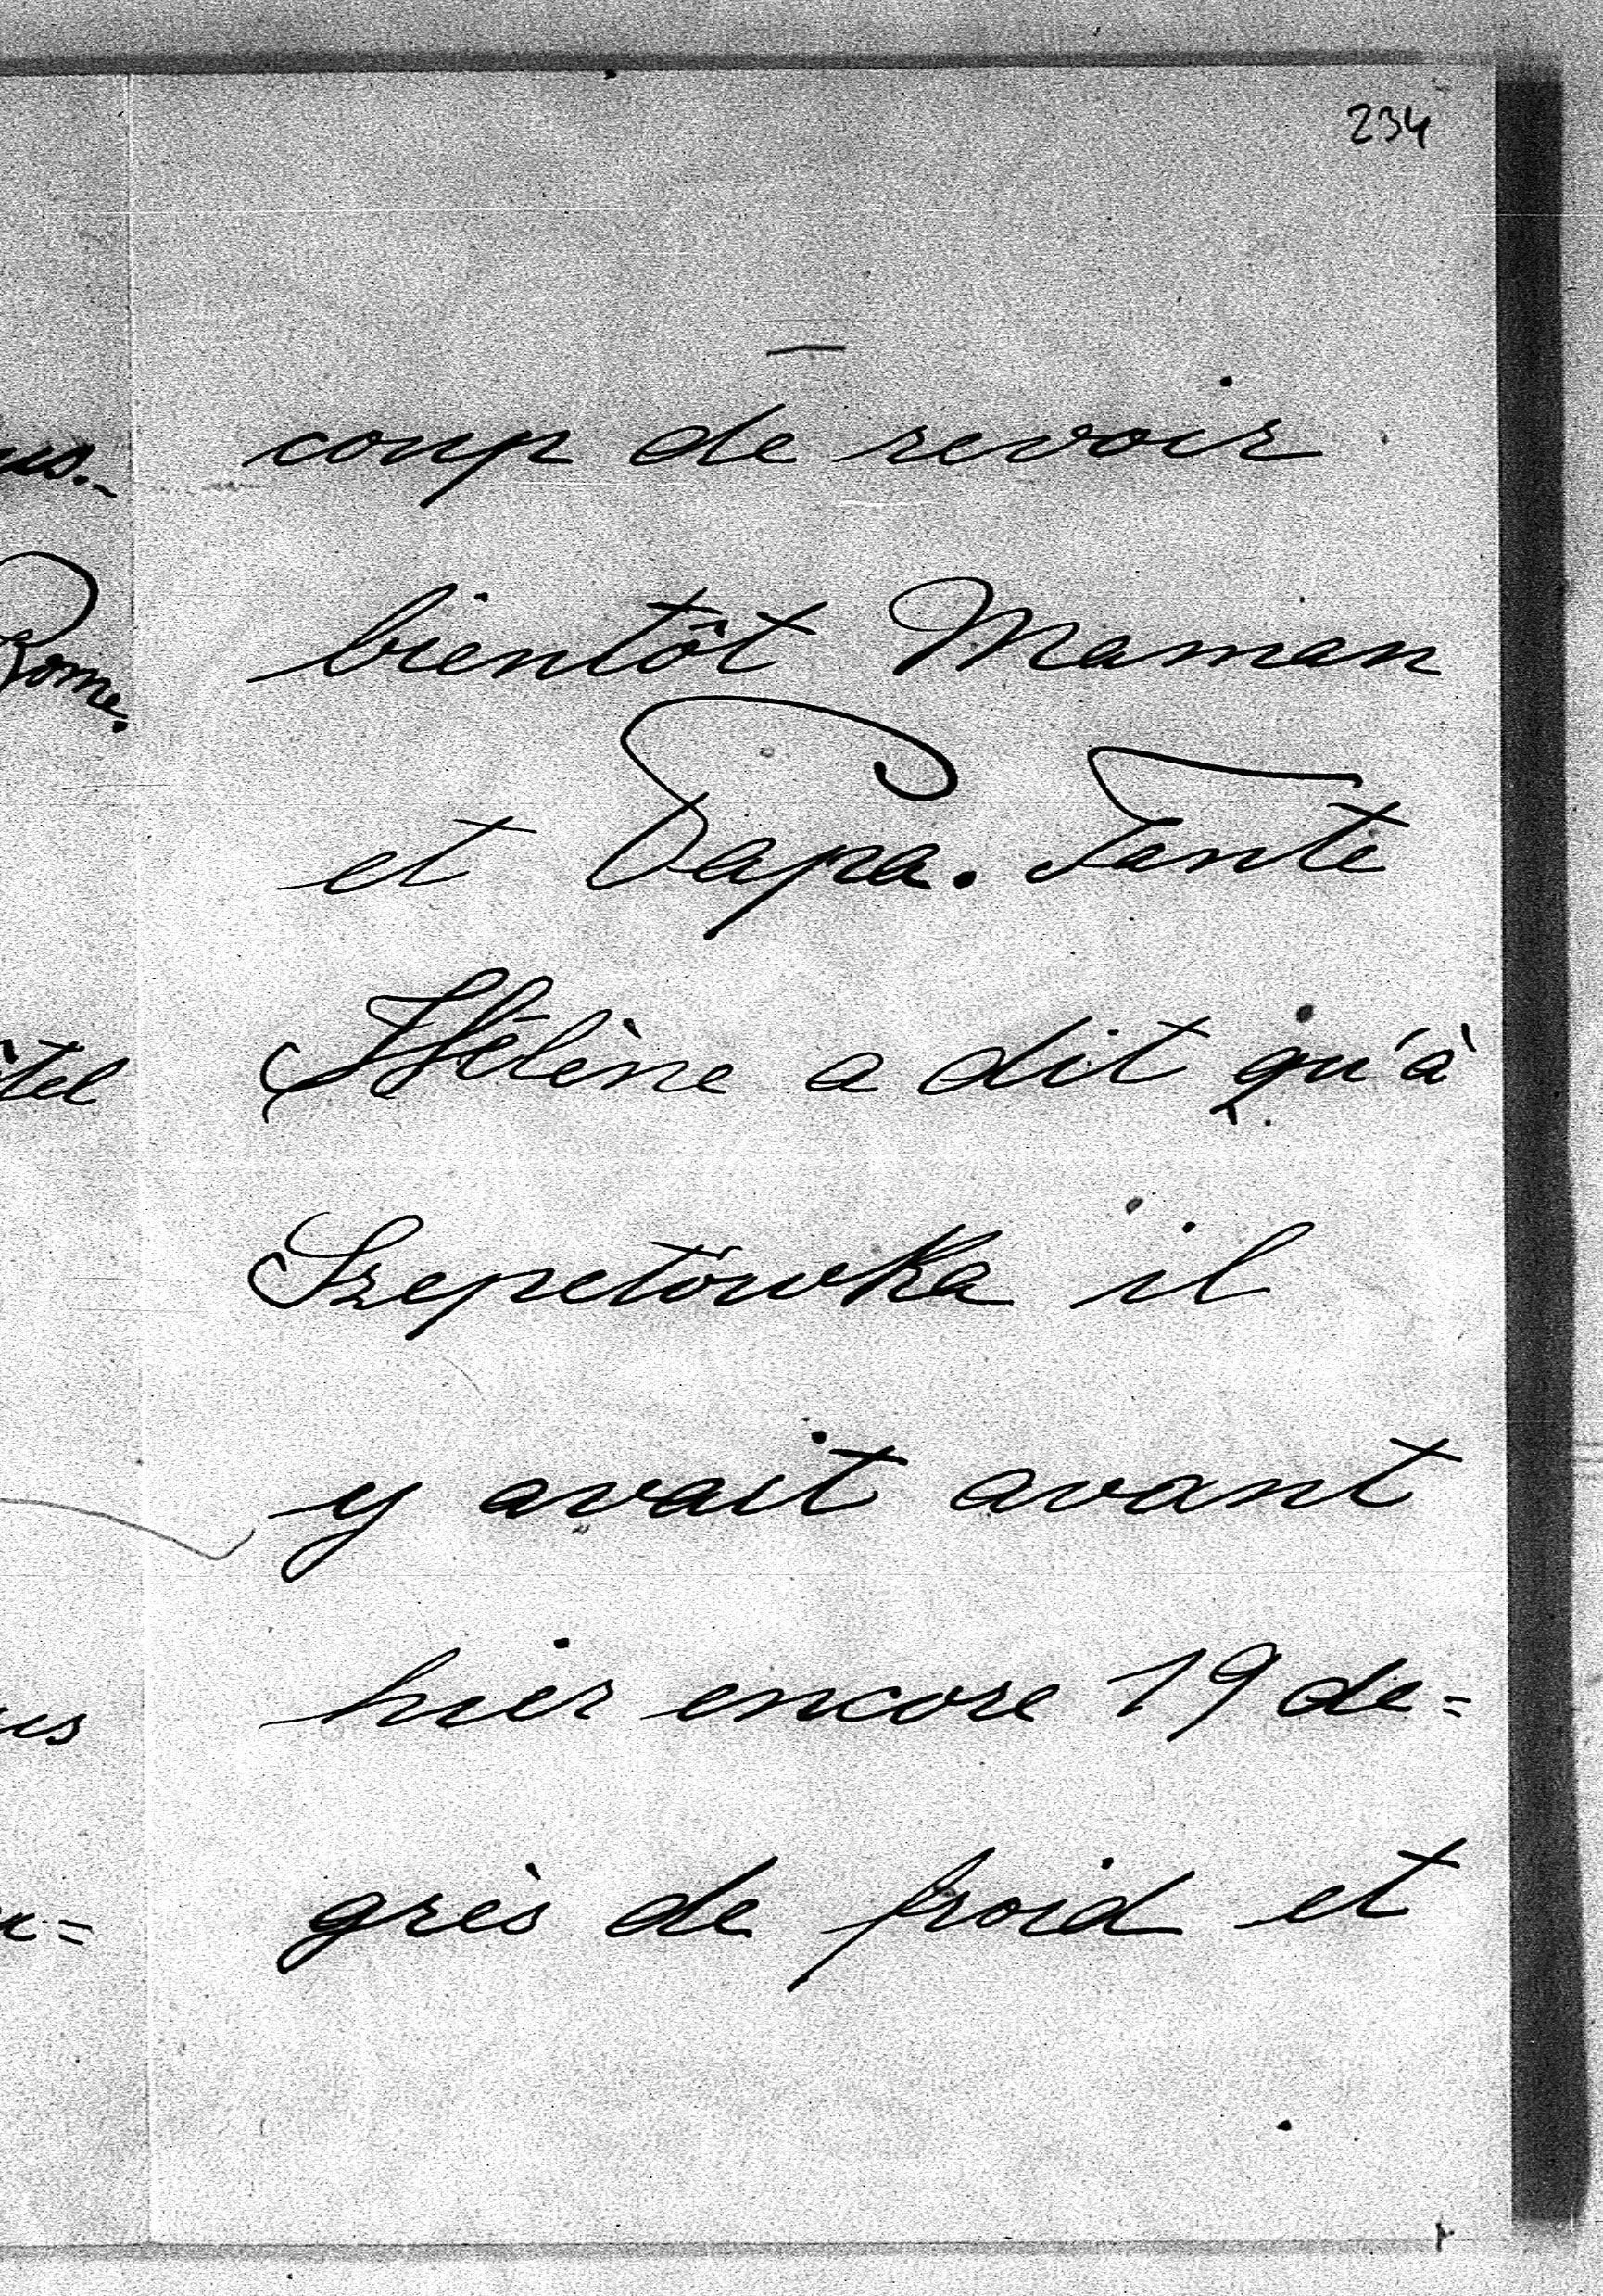 234
coup de revoir
bientôt Maman
et Papa. Tante
Hélène a dit qu'à
Szepetówka il
y avait avant
hier encore 19 de=
grès de froid et
Rome.